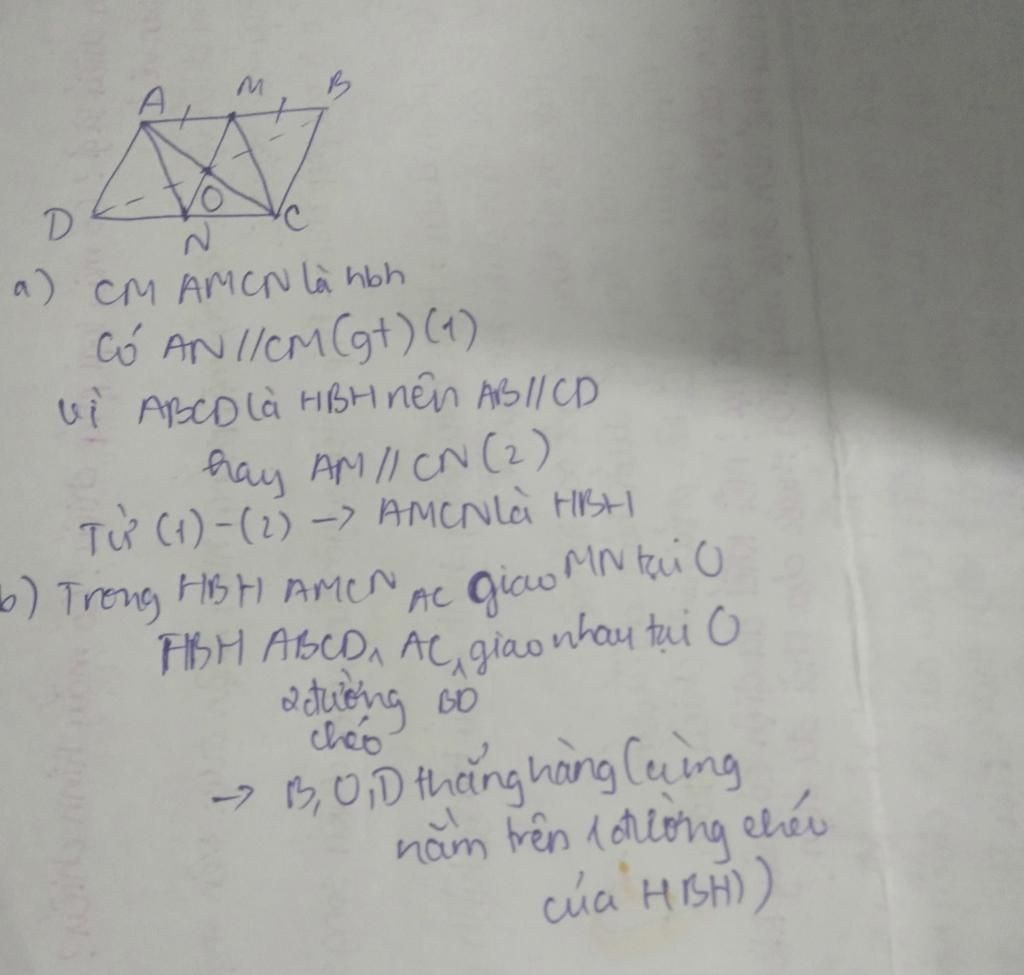 A M B
D N O C
a) CM AMCN là hbh
Có AN//CM(gt) (1)
Vì ABCD là HBH nên AB//CD
hay AM//CN (2)
Từ (1)-(2) → AMCN là HBH
b) Trong HBH AMCN AC giao MN tại O
HBH ABCD, AC, giao nhau tại O
2 đường BD
chéo
→ B, O, D thẳng hàng (cùng
nằm trên 1 đường chéo
của HBH))